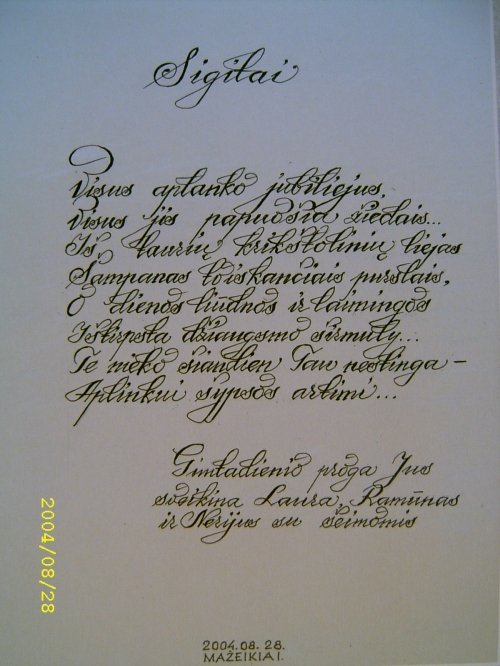 Sigitai
Visus aplanko jubiliejus,
Visus jis papuošia žiedais...
Iš taurių krikštolinių liejas
Šampanas tviskančiais purslais,
O dienos liūdnos ir laimingos
Ištirpsta džiaugsmo sūrmuly...
Te nieko šiandien Tau nestinga –
Aplinkui šypsos artimi...
Gimtadienio proga Jus
sveikina Laura, Ramūnas
ir Nerijus su šeimomis
2004/08/28
2004.08.28.
MAŽEIKIAI.